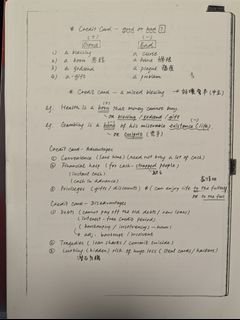 * Credit Card - good or bad ?
(+) (-)
Good Bad
1) a blessing a curse
2) a boon 恩賜 a bane
3) a godsend a plague
4) a gift a problem
* Credit card - a mixed blessing →
eg. Health is a boon that money cannot buy.
~ or blessing / godsend / gift
eg. Gambling is a bane of his miserable existence (life)
Credit card - Advantages
① Convenience (save time) (need not bring a lot of cash)
② Financial help (for cash-strapped people)
(instant cash)
(cash in advance)
③ Privileges (gifts / discounts) * (can enjoy life to the fullest
or to the full
Credit card - Disadvantages
① Debts (cannot pay off the old debts / new loans)
(interest-free credit period)
(bankruptcy / insolvency) - noun
* adj. bankrupt / insolvent
② Tragedies (loan sharks / commit suicides)
③ Lurking (hidden) risk of huge loss (steal cards / hackers)